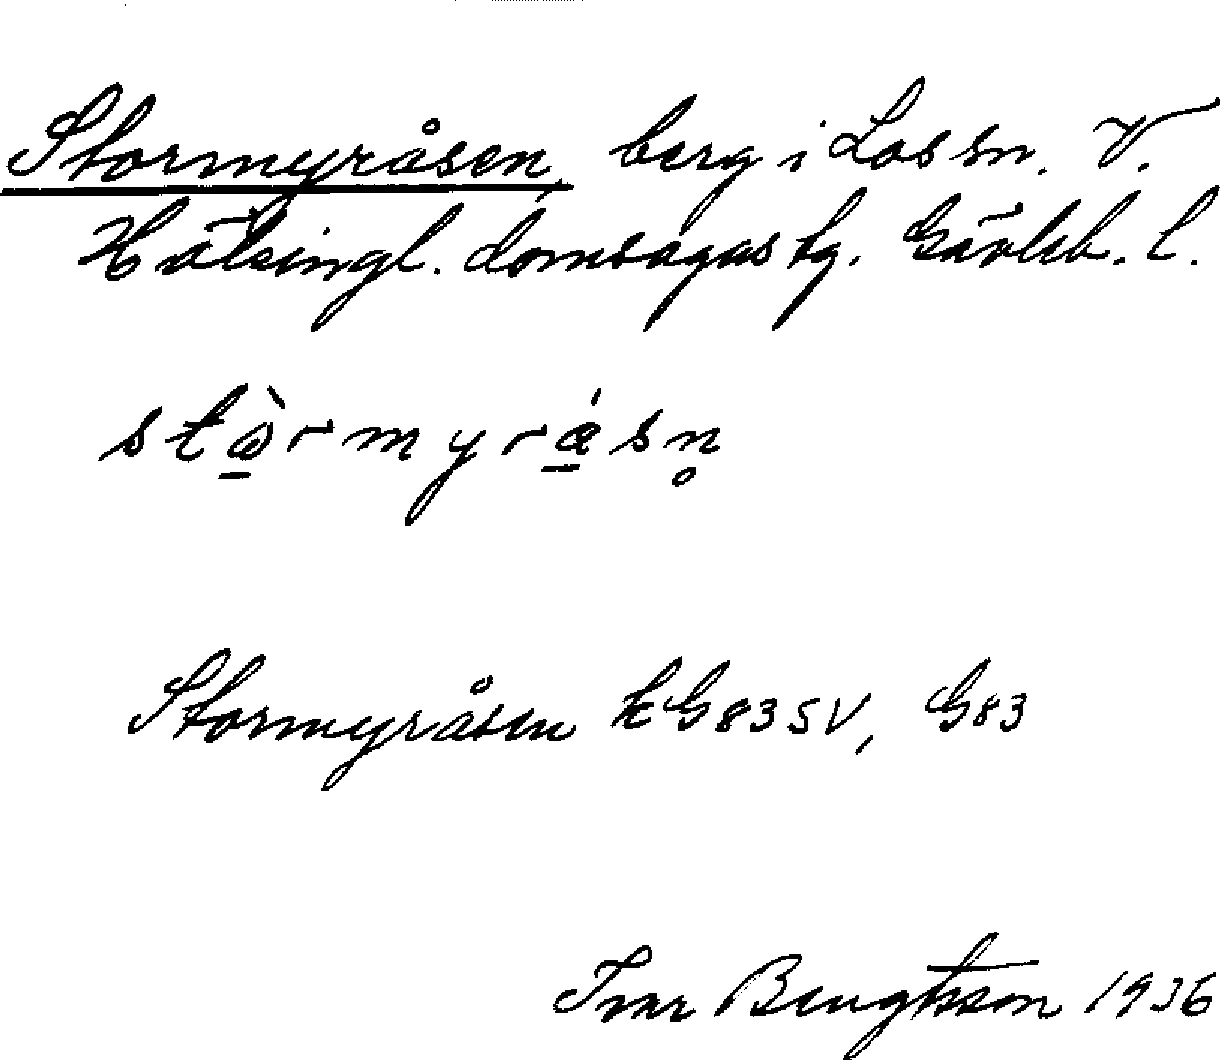 Stormyråsen, berg i Los sn. V.
Hälsingl. domsagas tg. Gävleb. l.
stor̀myrǽsn̥
Stormyråsen kG83SV, G83
Ivar Bengtsson 1936